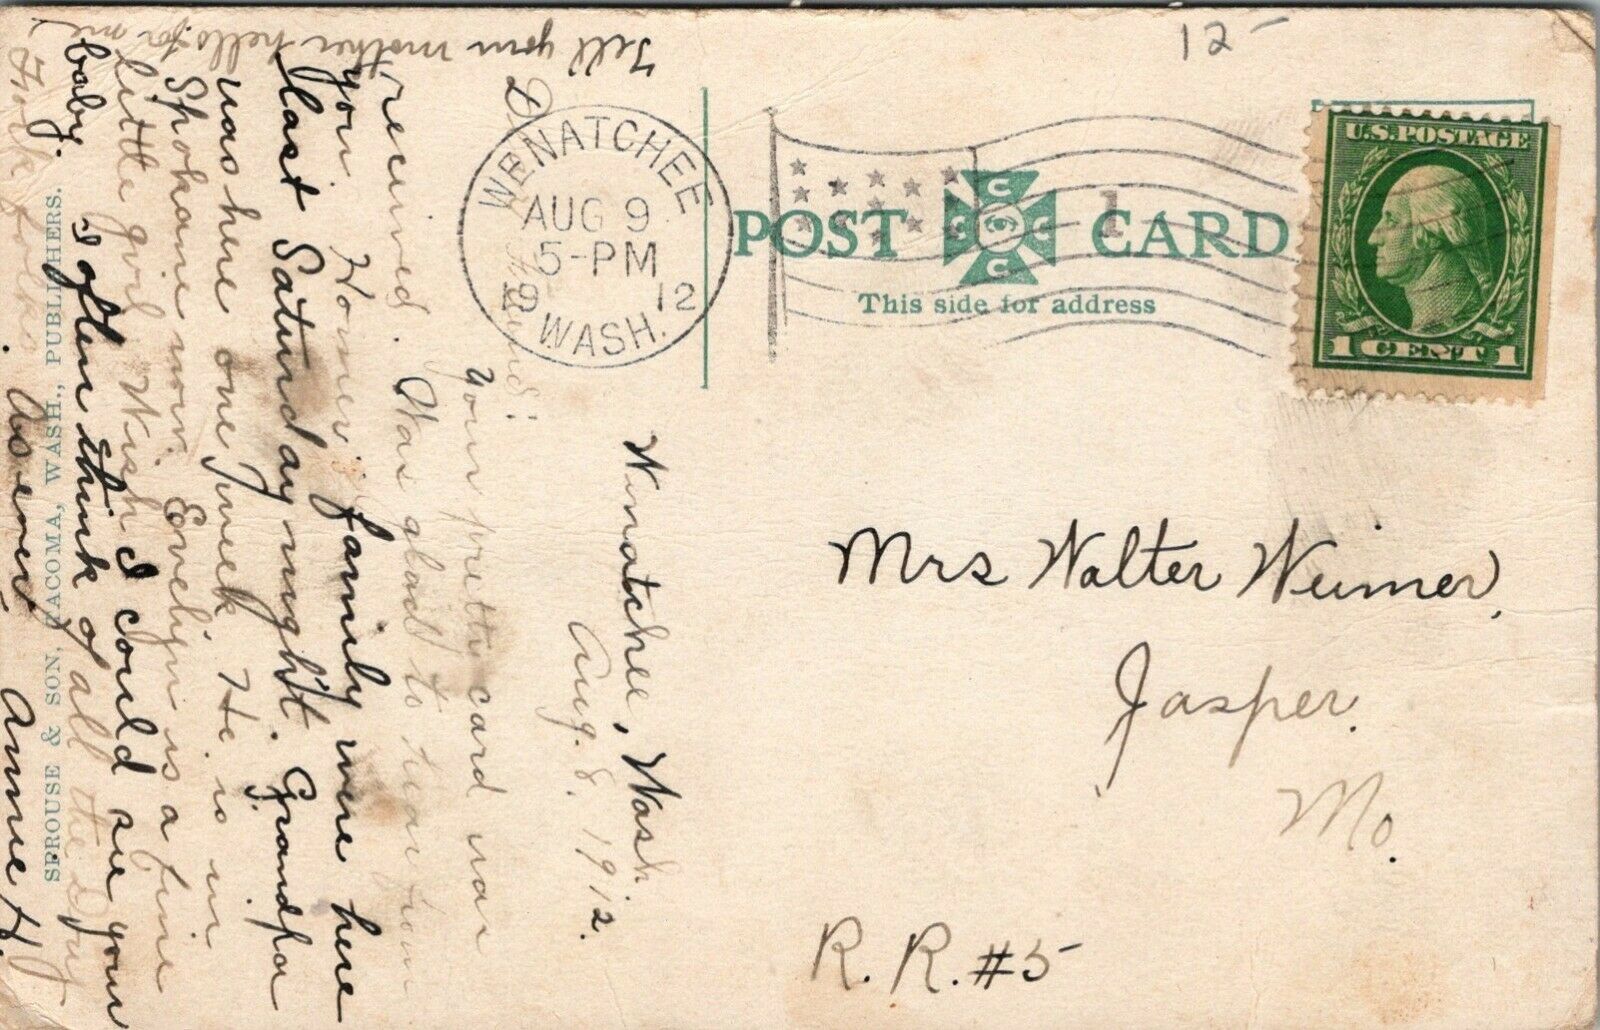 12-
POST CARD
This side for address
C C C C
1
WENATCHEE
AUG 9
5-PM
19 12
WASH.
U.S. POSTAGE
1 CENT 1
Mrs Walter Weimer,
Jasper.
Mo.
R. R. #5
Winatchee, Wash
Aug. 8. 1912.
Dear Friend:
Your pretty card was
received. Was glad to hear from
you. Homer family were here
last Saturday night. Grandpa
was here one week. He is in
Spokane now. Evelyn is a fine
little girl. Wish I could see your
baby. I often think of all the
folks. As ever Anne H.
Tell your mother hello for me
SPROUSE & SON, TACOMA, WASH., PUBLISHERS.